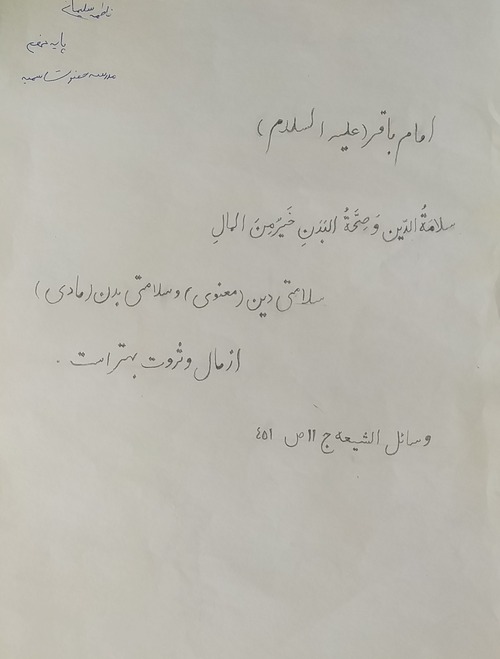 فاطمه سلیمانی
پایه هفتم
مدرسه حضرت سمیه
امام باقر (علیه السلام)
سلامَةُ الدّین وَ صِحَّةُ البَدَنِ خَیرٌ مِنَ المالِ
سلامتی دین (معنوی) و سلامتی بدن (مادی)
از مال و ثروت بهتر است .
وسائل الشیعه ج ۱۱ ص ۴۵۱